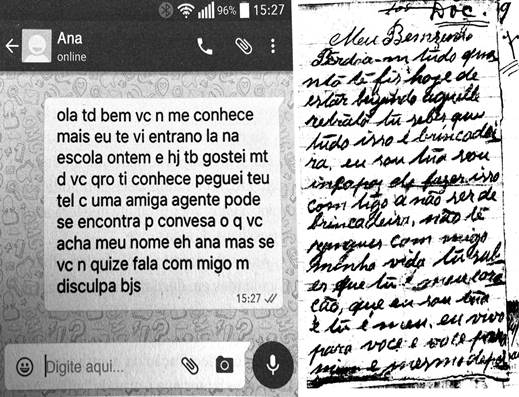 96% 15:27
Ana
online
ola td bem vc n me conhece
mais eu te vi entrano la na
escola ontem e hj tb gostei mt
d vc qro ti conhece peguei teu
tel c uma amiga agente pode
se encontra p convesa o q vc
acha meu nome eh ana mas se
vc n quize fala com migo m
disculpa bjs
15:27
Digite aqui...
Dóc. 9
Meu Bemzinho
Perdia-m tudo que
nta tê fis hoje de
estar
retrato tu sebes que
tudo isso é brincadei
ra, eu sou tua sou
incapas de fazer isso
com tigo a não ser de
brincadeira, não tê
zangues com migo
minha vida tu sab
es que tu é meu cora
ção, que eu sou tua
e tu é meu, eu vivo
para você e você para
mim e mesmo depo